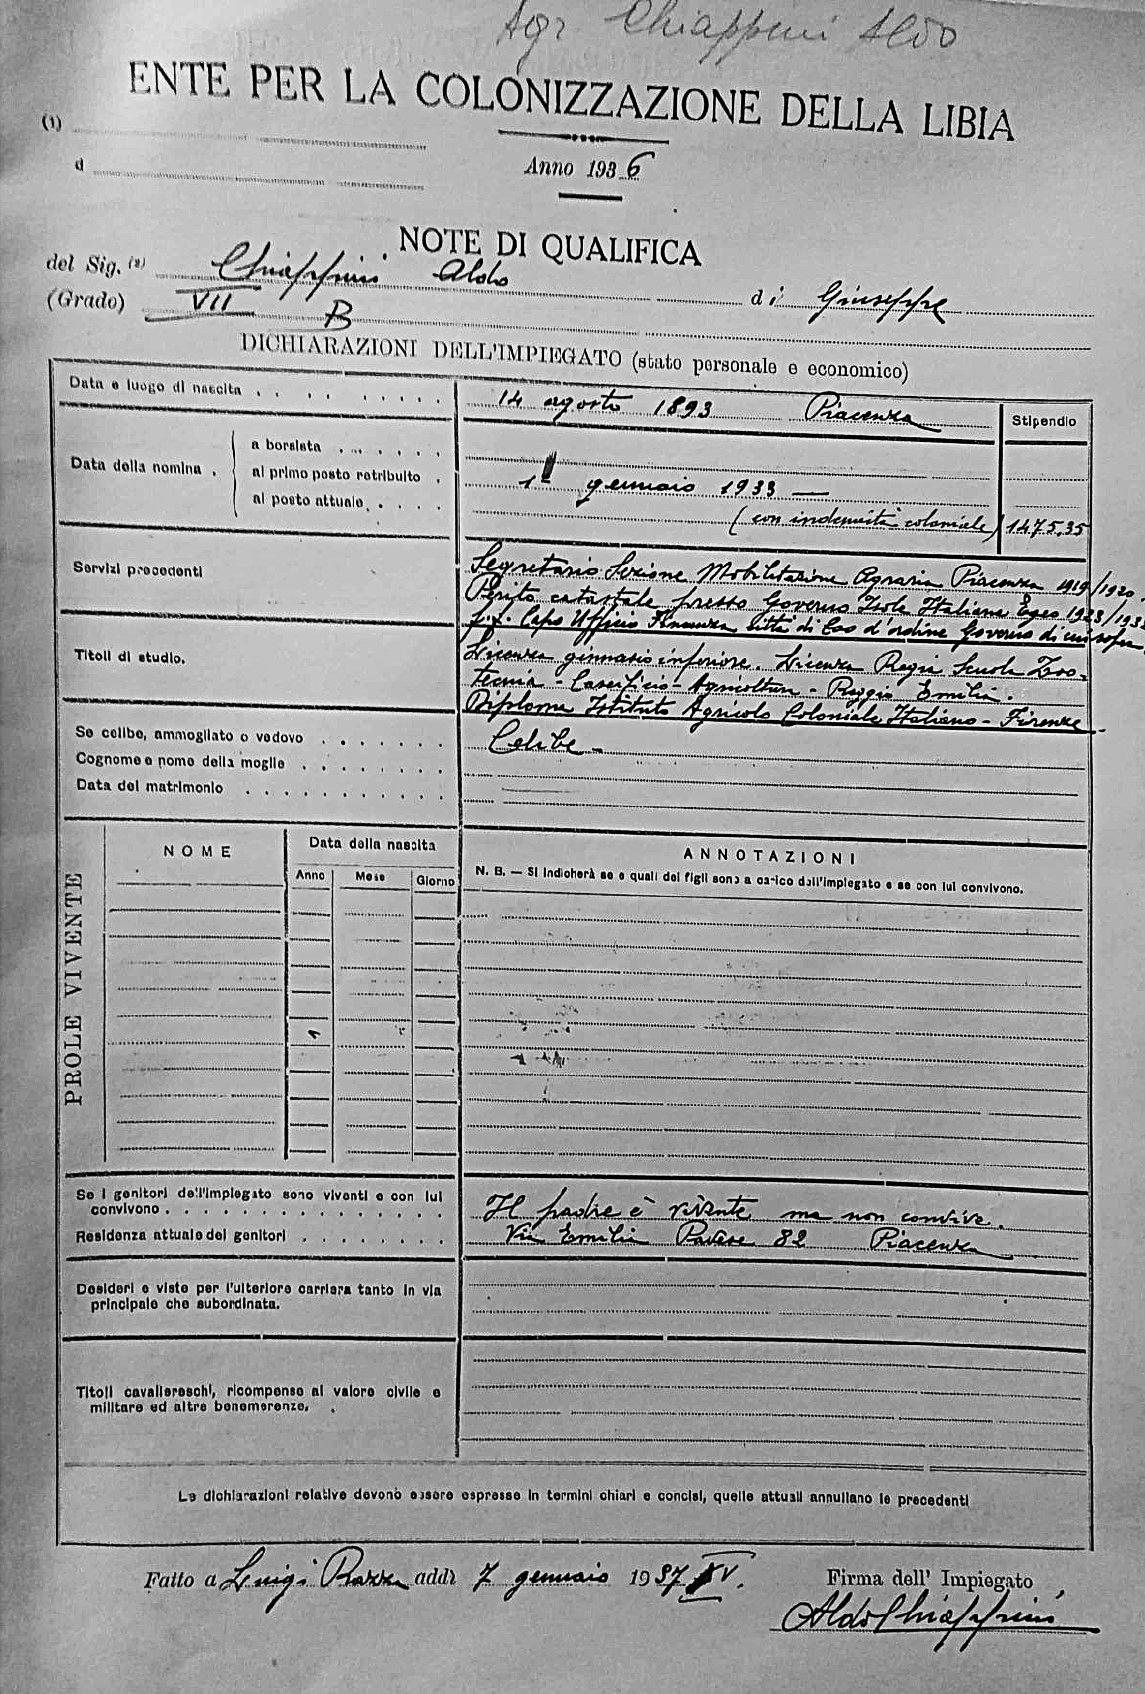 Agr. Chiappini Aldo
ENTE PER LA COLONIZZAZIONE DELLA LIBIA
(1)
d
Anno 1936
NOTE DI QUALIFICA
del Sig. (2) Chiappini Aldo di Giuseppe
(Grado) VII B
DICHIARAZIONI DELL'IMPIEGATO (stato personale e economico)
Data e luogo di nascita 14 agosto 1893 Piacenza
Stipendio
Data della nomina
a borsista
al primo posto retribuito
al posto attuale
1º gennaio 1933 —
(con indennità coloniale) 1475,35
Servizi precedenti
Segretario Sezione Mobilitazione Agraria Piacenza 1919/1920.
Perito catastale presso Governo Isole Italiane Egeo 1923/193
f.f. Capo Ufficio Finanza città di Coo d'ordine Governo di cui sopra
Titoli di studio.
Licenza ginnasio inferiore. Licenza Regia Scuola Zoo-
tecnia - Caseificio - Agricoltura - Reggio Emilia.
Diploma Istituto Agricolo Coloniale Italiano - Firenze -
Se celibe, ammogliato o vedovo Celibe -
Cognome e nome della moglie
Data del matrimonio
PROLE VIVENTE
NOME
Data della nascita
Anno Mese Giorno
ANNOTAZIONI
N. B. — Si indicherà se e quali dei figli sono a carico dall'impiegato e se con lui convivono.
Se i genitori dell'impiegato sono viventi e con lui
convivono Il padre è vivente ma non convive.
Residenza attuale dei genitori Via Emilia Pavese 82 Piacenza
Desideri e viste per l'ulteriore carriera tanto in via
principale che subordinata.
Titoli cavallereschi, ricompense al valore civile e
militare ed altre benemerenze.
Le dichiarazioni relative devono essere espresse in termini chiari e concisi, quelle attuali annullano le precedenti
Fatto a Luigi Razza addì 7 gennaio 1937 XV.
Firma dell' Impiegato
Aldo Chiappini